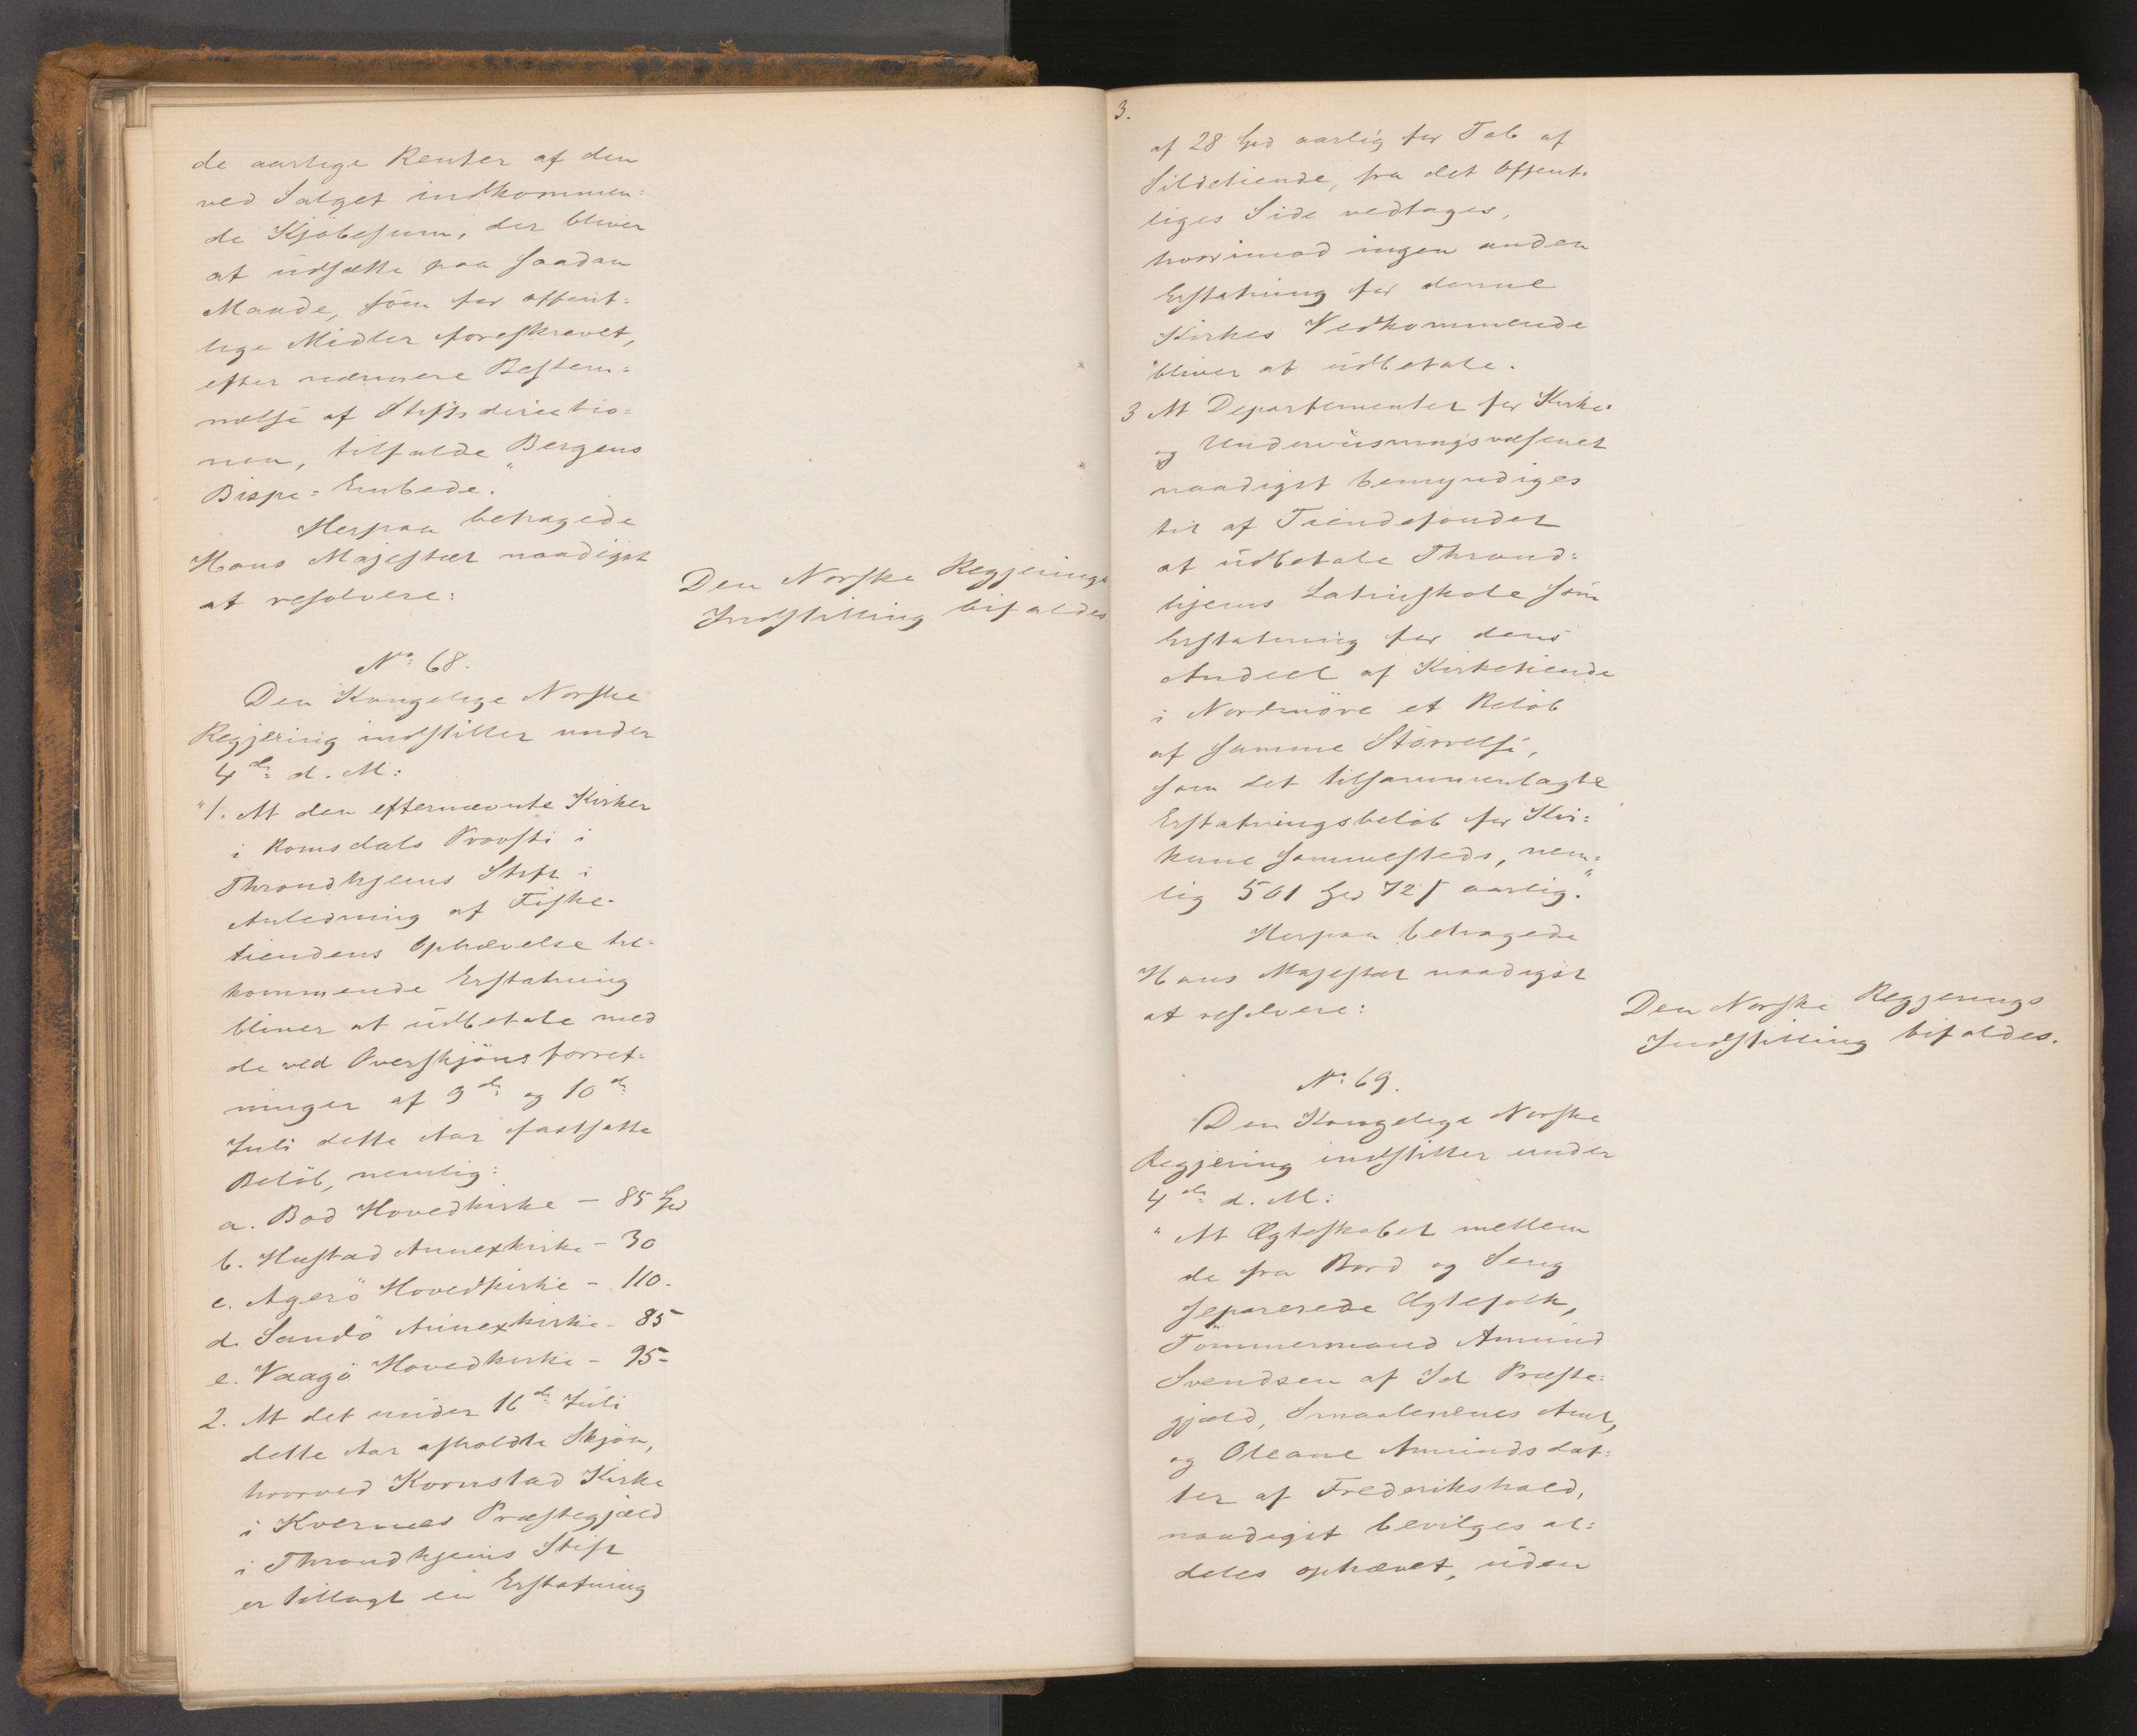 de aarlige Renter af den
ved Salget indkommen=
de Kjöbesum, der bliver
at udsætte paa saadan
Maade, som for offent=
lige Midler foreskrevet,
efter nærmere Bestem=
melse af Stiftsdirectio=
nen, tilfalde Bergens
Bispe=Embede."
Herpaa behagede
Hans Majestæt naadigst
at resolvere:
Den Norske Regjerings
Indstilling bifaldes.
No 68.
Den Kongelige Norske
Regjering indstiller under
4de d. M:
"1. At den efternævnte Kirker
i Romsdals Provsti i
Throndhjems Stift i
Anledning af Fiske-
tiendens Ophævelse til-
kommende Erstatning
bliver at udbetale med
de ved Overskjönsforret-
ninger af 9de og 10de
Juli dette Aar fastsatte
Belöb, nemlig:
a. Bod Hovedkirke - 85 Spd
b. Hustad Annexkirke - 30
c. Agerö Hovedkirke - 110.
d. Sandö Annexkirke - 85
e. Vaagö Hovedkirke - 95-
2. At det under 16de Juli
dette Aar afholdte Skjön,
hvorved Kornstad Kirke
i Kvernes Præstegjæld
i Throndhjems Stift
er tillagt en Erstatning
3.
af 28 Spd aarlig for Tab af
Sildetiende, fra det Offent-
liges Side vedtages,
hvorimod ingen anden
Erstatning for denne
Kirkes Vedkommende
bliver at udbetale.
3 At Departementet for Kirke-
og Underviisningsvæsenet
naadigst bemyndiges
til af Tiendefondet
at udbetale Thrond=
hjems Latinskole som
Erstatning for dens
Andeel af Kirketiende
i Nordmöre et Belöb
af samme Störrelse,
som det tilsammenlagte
Erstatningsbelöb for Kir=
kerne sammesteds, nem=
lig 501 Spd 72 s aarlig."
Herpaa behagede
Hans Majestæt naadigst
at resolvere:
Den Norske Regjerings
Indstilling bifaldes.
No 69.
Den Kongelige Norske
Regjering indstiller under
4de d. M:
"At Ægteskabet mellem
de fra Bord og Seng
separerede Ægtefolk,
Tömmermand Amund
Svendsen af Id Præste=
gjæld, Smaalenenes Amt,
og Oleane Amundsdat=
ter af Frederikshald,
naadigst bevilges al=
deles ophævet, uden